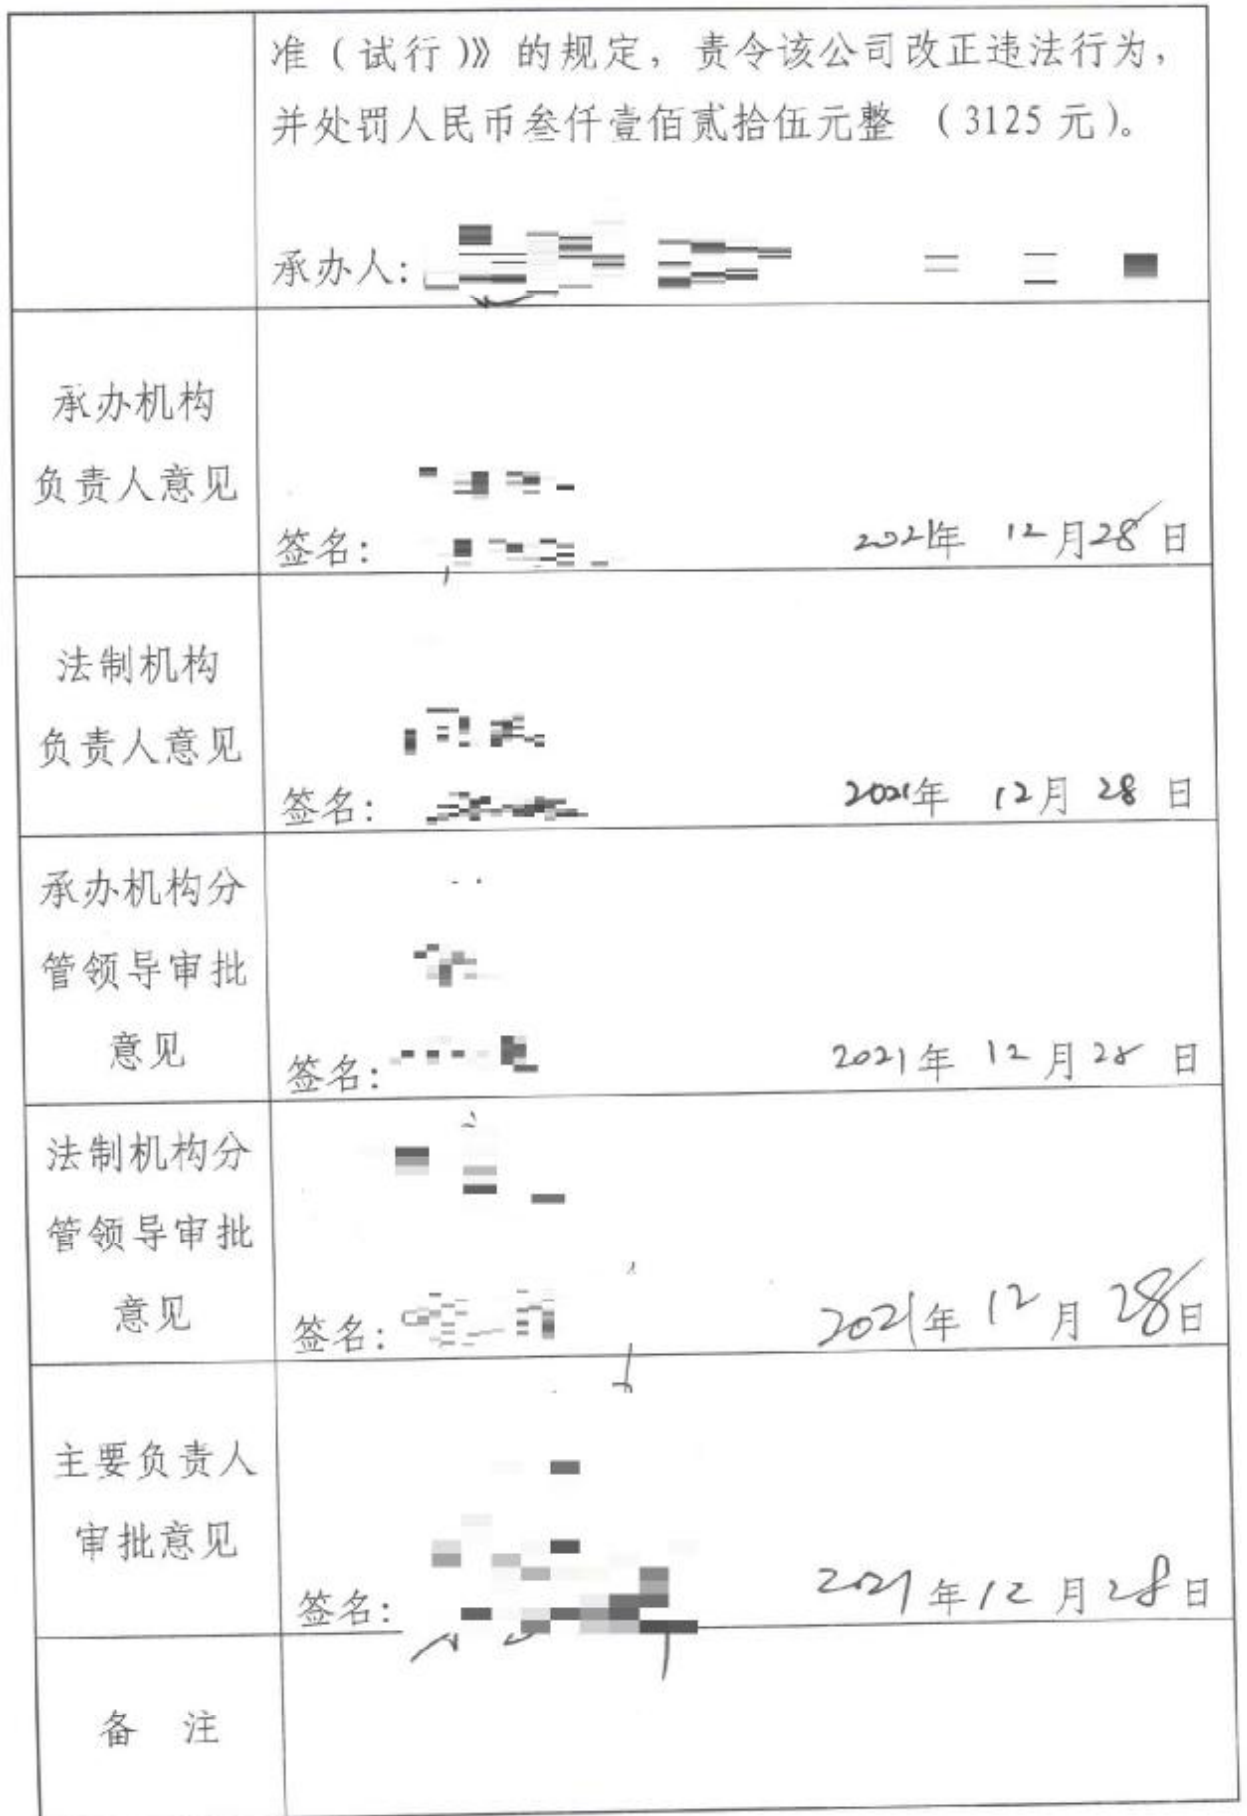 准（试行）》的规定，责令该公司改正违法行为，
并处罚人民币叁仟壹佰贰拾伍元整 （3125 元）。
承办人：
承办机构
负责人意见
签名： 2021年 12月28日
法制机构
负责人意见
签名： 2021年 12月 28 日
承办机构分
管领导审批
意见
签名： 2021年 12月28 日
法制机构分
管领导审批
意见
签名： 2021年 12月 28日
主要负责人
审批意见
签名： 2021年12月28日
备 注